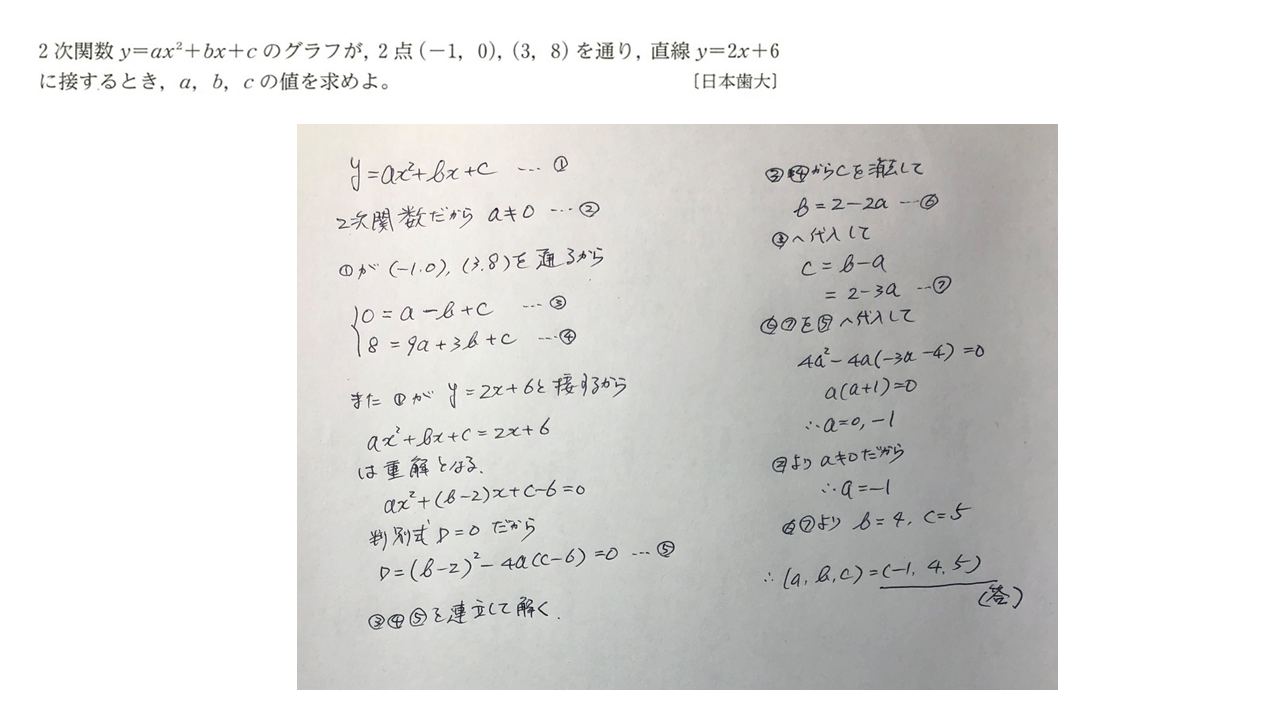 2次関数 y=ax²+bx+c のグラフが，2点(−1，0)，(3，8)を通り，直線 y=2x+6
に接するとき，a，b，c の値を求めよ。 〔日本歯大〕
y=ax²+bx+c … ①
2次関数だから a≠0 … ②
①が(-1.0), (3.8)を通るから
0=a-b+c … ③
8=9a+3b+c … ④
また ①が y=2x+6と接するから
ax²+bx+c=2x+6
は重解となる.
ax²+(b-2)x+c-6=0
判別式 D=0 だから
D=(b-2)²-4a(c-6)=0 … ⑤
③④⑤を連立して解く.
③④からcを消去して
b=2-2a … ⑥
③へ代入して
c=b-a
=2-3a … ⑦
⑥⑦を⑤へ代入して
4a²-4a(-3a-4)=0
a(a+1)=0
∴a=0, -1
②より a≠0だから
∴a=-1
⑥⑦より b=4, c=5
∴(a, b, c)=(-1, 4, 5)
(答)